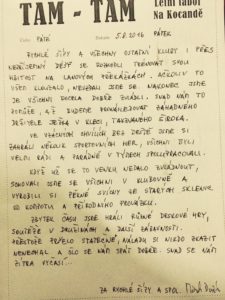 TAM - TAM
Letní tábor
Na Kocandě
Číslo PÁTÉ Datum 5.8.2016 PÁTEK
RYCHLÉ ŠÍPY A VŠECHNY OSTATNÍ KLUBY I PŘES
NEPŘÍJEMNÝ DÉŠŤ SE ROZHODLI TRÉNOVAT SVOU
HBITOST NA LANOVÝCH PŘEKÁŽKÁCH. AČKOLIV TO
VŠEM KLOUZALO, NEVZDALI JSME SE A NAKONEC JSME
JE VŠICHNI DOCELA DOBŘE ZVLÁDLI. SNAD NÁM TO
POMŮŽE, AŽ BUDEME PRONÁSLEDOVAT ZÁHADNÉHO
DRŽITELE JEŽKA V KLECI, TAKZVANÉHO ŠIROKA.
VE VZÁCNÝCH CHVÍLÍCH BEZ DEŠTĚ JSME SI
ZAHRÁLI NĚKOLIK SPORTOVNÍCH HER, VŠICHNI BYLI
VELMI RÁDI A PARÁDNĚ V TÝMECH SPOLUPRACOVALI.
KDYŽ UŽ SE TO VENKU NEDALO ZVLÁDNOUT,
SCHOVALI JSME SE VŠICHNI V KLUBOVNĚ A
VYROBILI SI PĚKNÉ SVÍCNY ZE STARÝCH SKLENIC
OD KOMPOTU A PŘÍRODNÍHO PROVÁZKU.
ZBYTEK ČASU JSME HRÁLI RŮZNÉ DESKOVÉ HRY,
SOUTĚŽE V DRUŽINÁCH A DALŠÍ ZÁBAVNOSTI.
PŘESTOŽE PRŠELO STATEČNĚ, NÁLADU SI NIKDO ZKAZIT
NENECHAL A ŠLO SE NÁM SPÁT DOBŘE. SNAD SE NÁM
ZÍTRA VYČASÍ...
ZA RYCHLÉ ŠÍPY A SPOL.